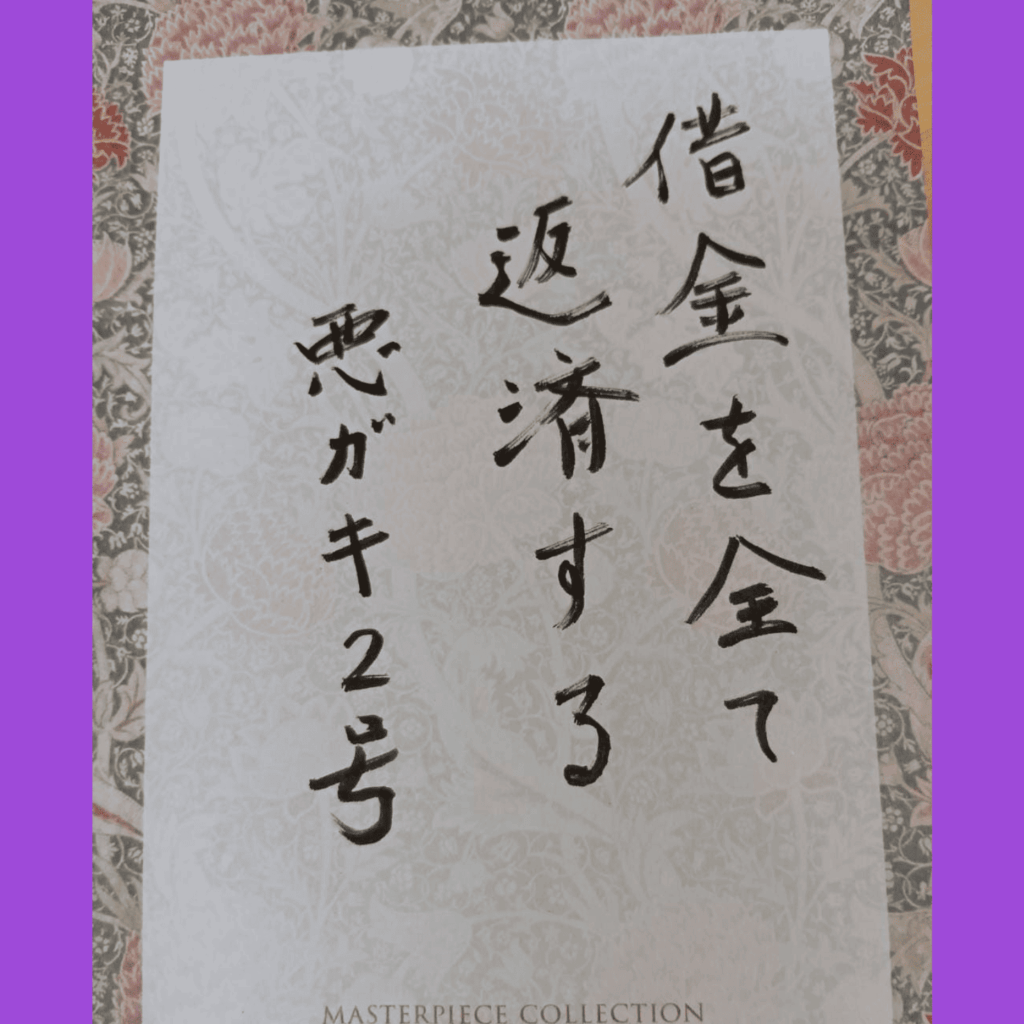 借金を全て
返済する
悪ガキ2号
MASTERPIECE COLLECTION